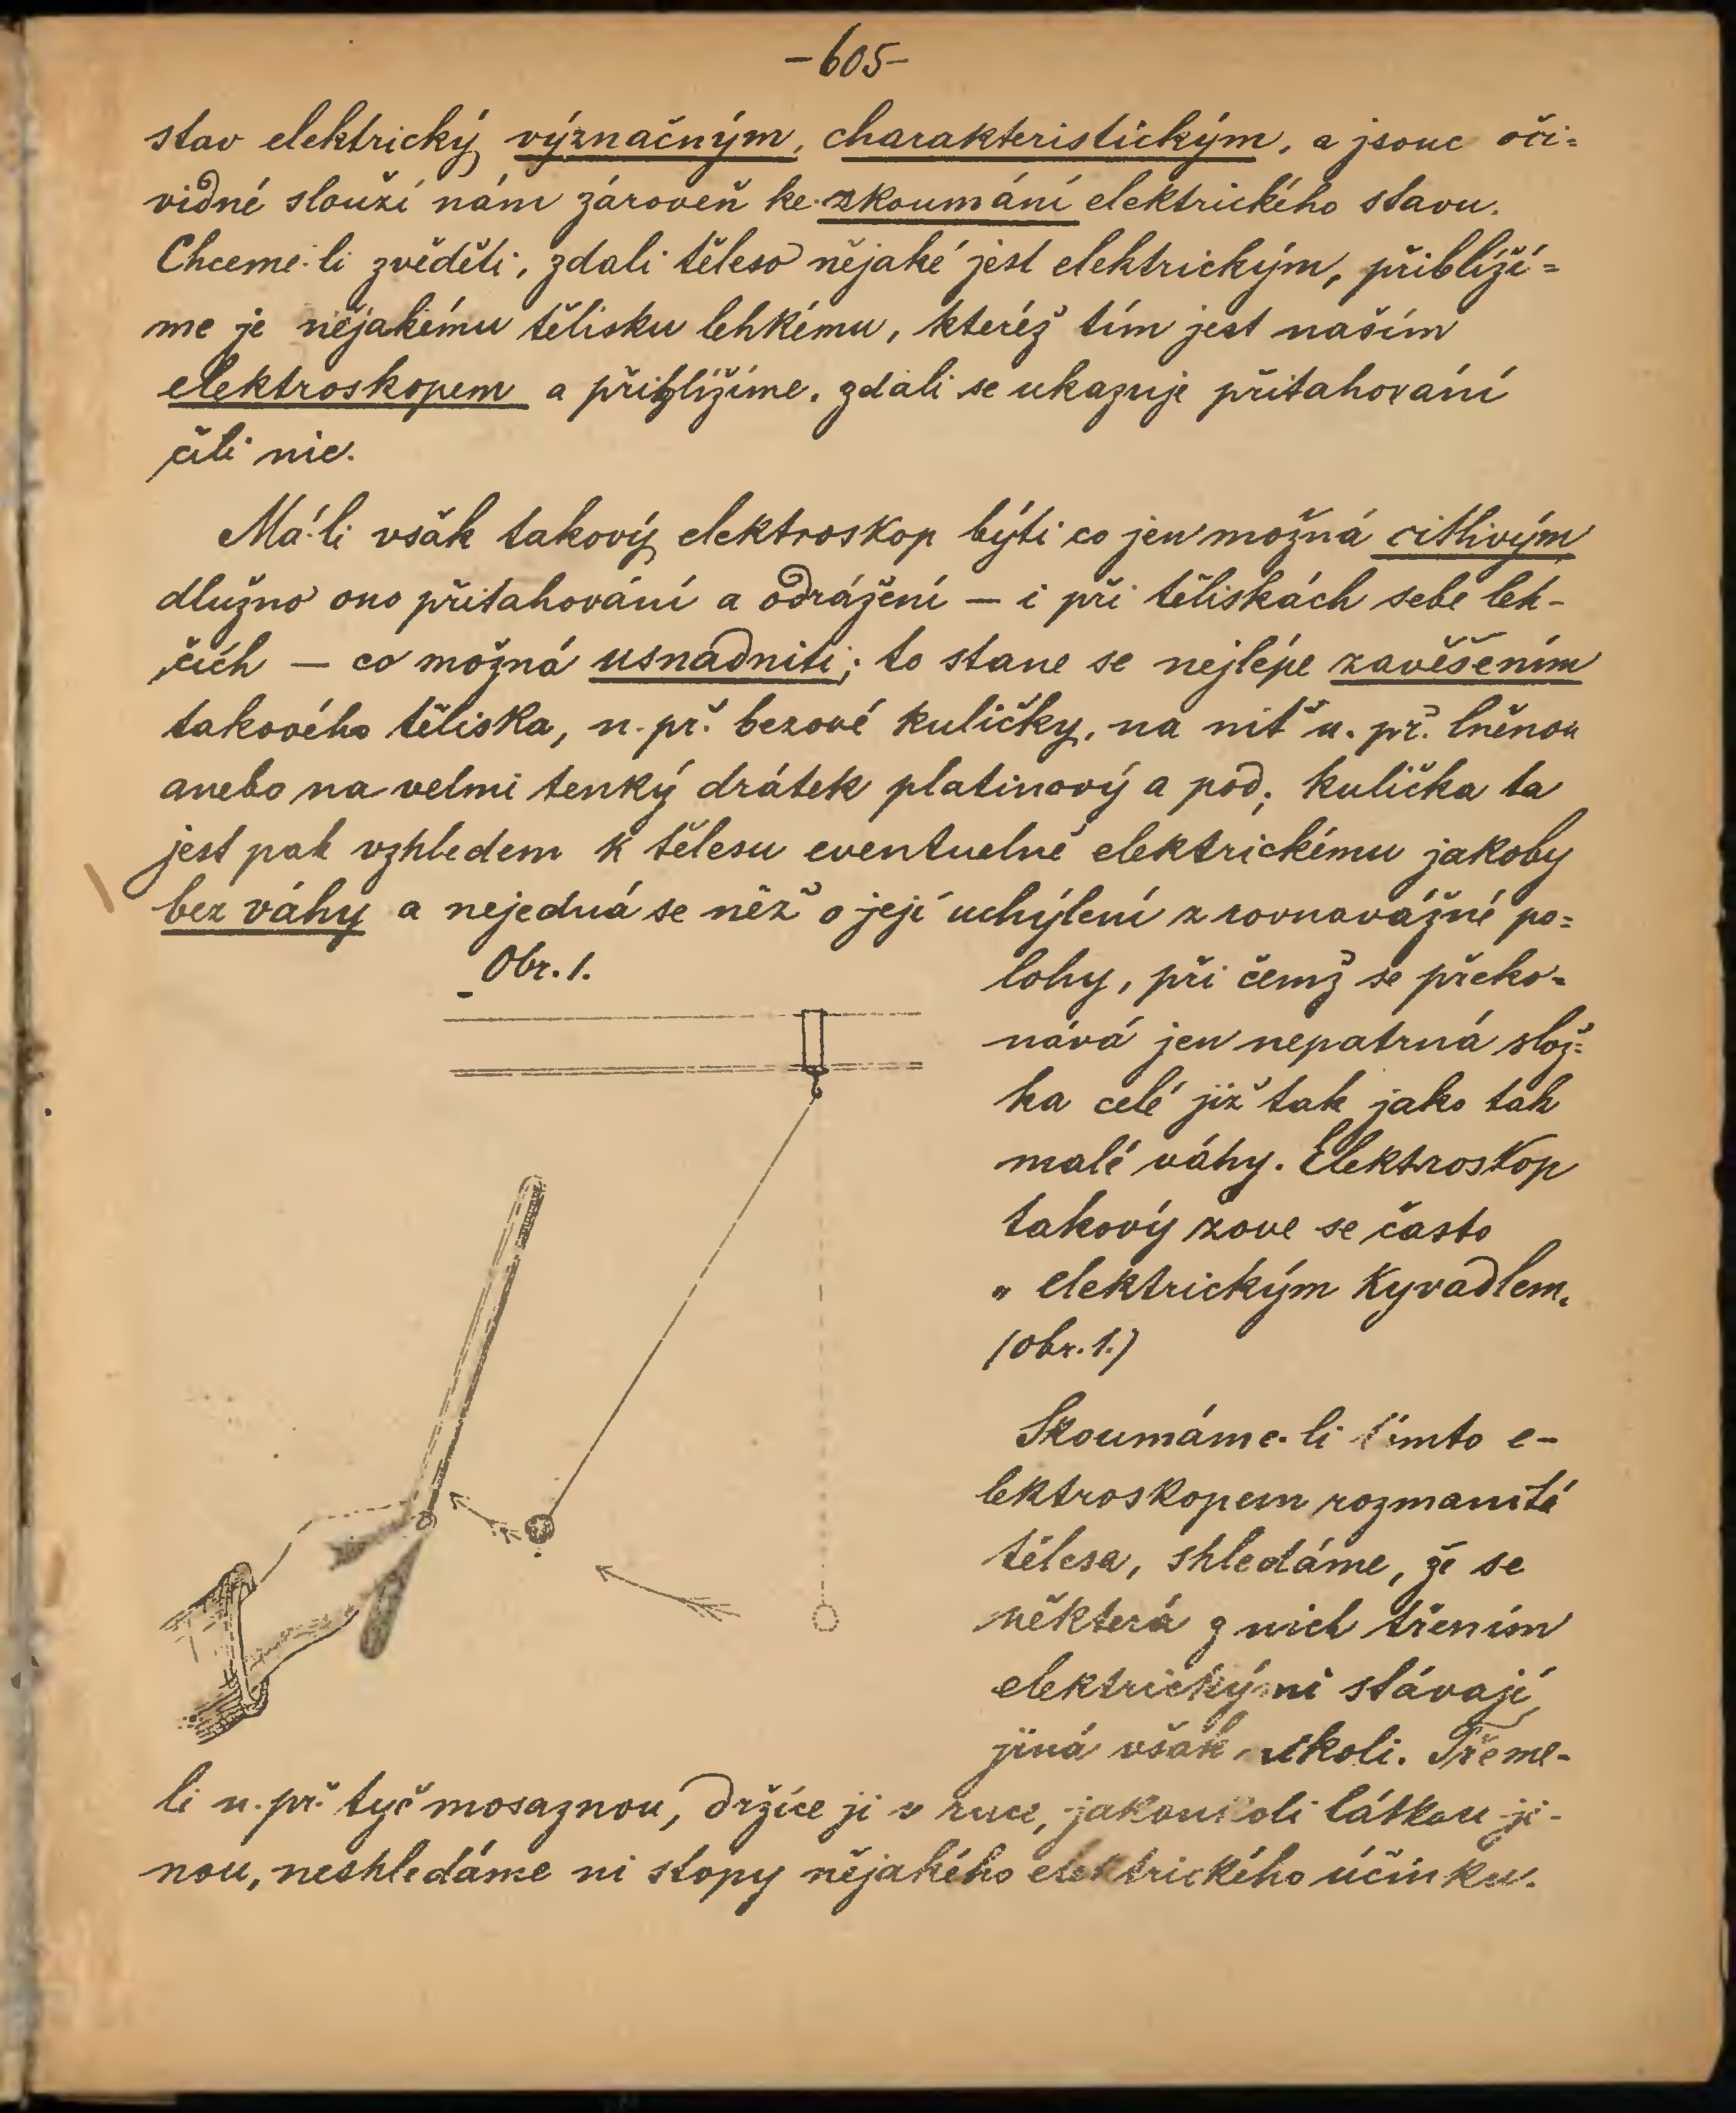 -605-
stav elektrický význačným, charakteristickým, a jsouc oči=
vidné slouží nám zároveň ke zkoumání elektrického stavu.
Chceme-li zvěděti, zdali těleso nějaké jest elektrickým, přiblíží=
me je nějakému tělisku lehkému, kteréž tím jest naším
elektroskopem a přiblížíme, zdali se ukazuje přitahování
čili nic.
Má-li však takový elektroskop býti co jen možná citlivým
dlužno ono přitahování a odrážení — i při těliskách sebe leh-
čích — co možná usnadniti; to stane se nejlépe zavěšením
takového těliska, n. př. bezové kuličky, na niť n. př. lněnou
anebo na velmi tenký drátek platinový a pod; kulička ta
jest pak vzhledem k tělesu eventuelně elektrickému jakoby
bez váhy a nejedná se něž o její uchýlení z rovnovážné po=
Obr. 1.
lohy, při čemž se překo-
nává jen nepatrná slož-
ka celé již tak jako tak
malé váhy. Elektroskop
takový zove se často
„elektrickým kyvadlem.
(obr. 1.)
Zkoumáme-li tímto e-
lektroskopem rozmanitá
tělesa, shledáme, že se
některá z nich třením
elektrickými stávají,
jiná však nikoli. Třeme-
li n. př. tyč mosaznou, držíce ji v ruce, jakoukoli látkou ji-
nou, neshledáme ni stopy nějakého elektrického účinku.